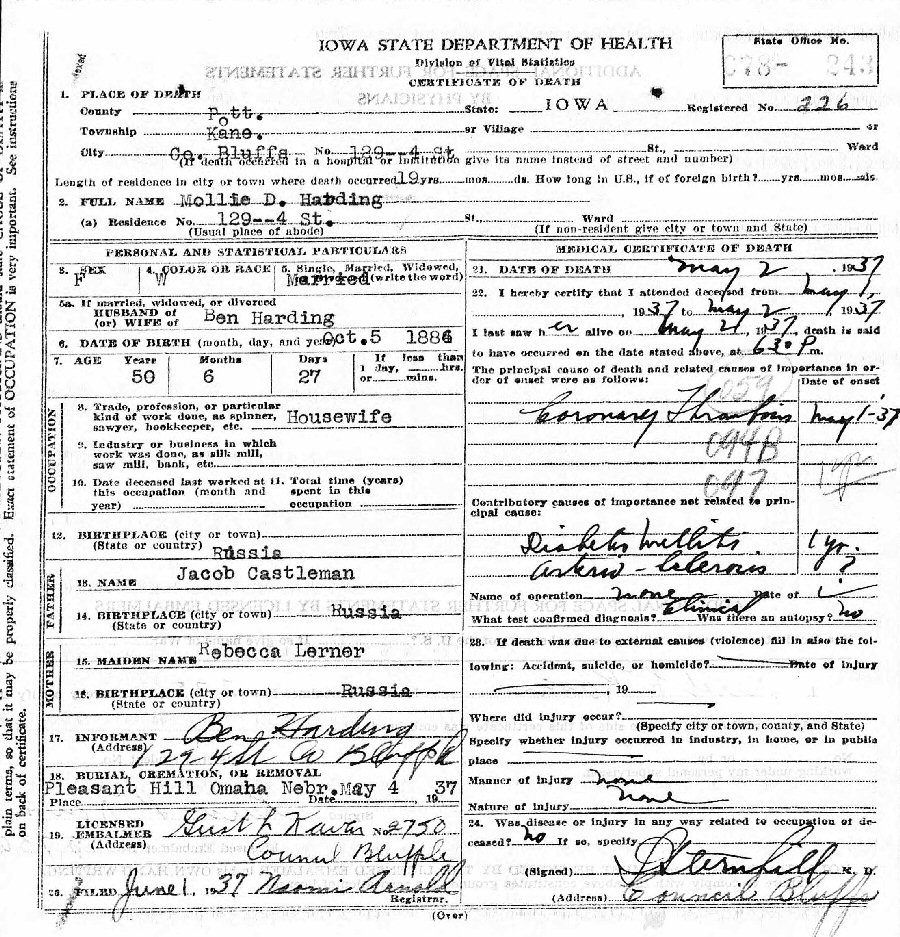 IOWA STATE DEPARTMENT OF HEALTH
Division of Vital Statistics
CERTIFICATE OF DEATH
State Office No.
C78- 243
1. PLACE OF DEATH
County Pott. State: IOWA Registered No. 226
Township Kane. or Village or
City Co. Bluffs No. 129--4 St St., Ward
(If death occurred in a hospital or institution give its name instead of street and number)
Length of residence in city or town where death occurred 19 yrs. mos. ds. How long in U.S., if of foreign birth? yrs. mos. ds.
2. FULL NAME Mollie D. Harding
(a) Residence No. 129--4 St. St., Ward
(Usual place of abode) (If non-resident give city or town and State)
PERSONAL AND STATISTICAL PARTICULARS
3. SEX F
4. COLOR OR RACE W
5. Single, Married, Widowed, (write the word)
Married
5a. If married, widowed, or divorced
HUSBAND of
(or) WIFE of Ben Harding
6. DATE OF BIRTH (month, day, and year) Oct.5 1886
7. AGE Years Months Days If less than
1 day, hrs.
50 6 27 or mins.
OCCUPATION
8. Trade, profession, or particular
kind of work done, as spinner,
sawyer, bookkeeper, etc. Housewife
9. Industry or business in which
work was done, as silk mill,
saw mill, bank, etc.
10. Date deceased last worked at this occupation (month and year)
11. Total time (years) spent in this occupation
12. BIRTHPLACE (city or town)
(State or country) Russia
FATHER
13. NAME Jacob Castleman
14. BIRTHPLACE (city or town) Russia
(State or country)
MOTHER
15. MAIDEN NAME Rebecca Lerner
16. BIRTHPLACE (city or town) Russia
(State or country)
17. INFORMANT Ben Harding
(Address) 129 4 St Co Bluffs
18. BURIAL, CREMATION, OR REMOVAL
Pleasant Hill Omaha Nebr. May 4 37
Place Date 19
19. LICENSED
EMBALMER No. 2750
(Address) Council Bluffs
20. FILED June 1, 1937 Naomi Arnold
Registrar.
MEDICAL CERTIFICATE OF DEATH
21. DATE OF DEATH May 2, 1937
22. I hereby certify that I attended deceased from May 1,
, 1937 to May 2 1937
I last saw her alive on May 2, 1937, death is said
to have occurred on the date stated above, at 630 P m.
The principal cause of death and related causes of importance in or-
der of onset were as follows: Date of onset
Coronary Thrombosis May 1-37
094B
097
Contributory causes of importance not related to prin-
cipal cause:
Diabetes Mellitis 1 yr.
Arterio-Sclerosis ?
Name of operation none Date of
What test confirmed diagnosis? Clinical Was there an autopsy? no
23. If death was due to external causes (violence) fill in also the fol-
lowing: Accident, suicide, or homicide? Date of injury
, 19
Where did injury occur?
(Specify city or town, county, and State)
Specify whether injury occurred in industry, in home, or in public
place
Manner of injury none
Nature of injury none
24. Was disease or injury in any way related to occupation of de-
ceased? no If so, specify
(Signed) Sternhill M. D.
(Address) Council Bluffs
(Over)
plain terms, so that it may be properly classified. Exact statement of OCCUPATION is very important. See instructions
on back of certificate.